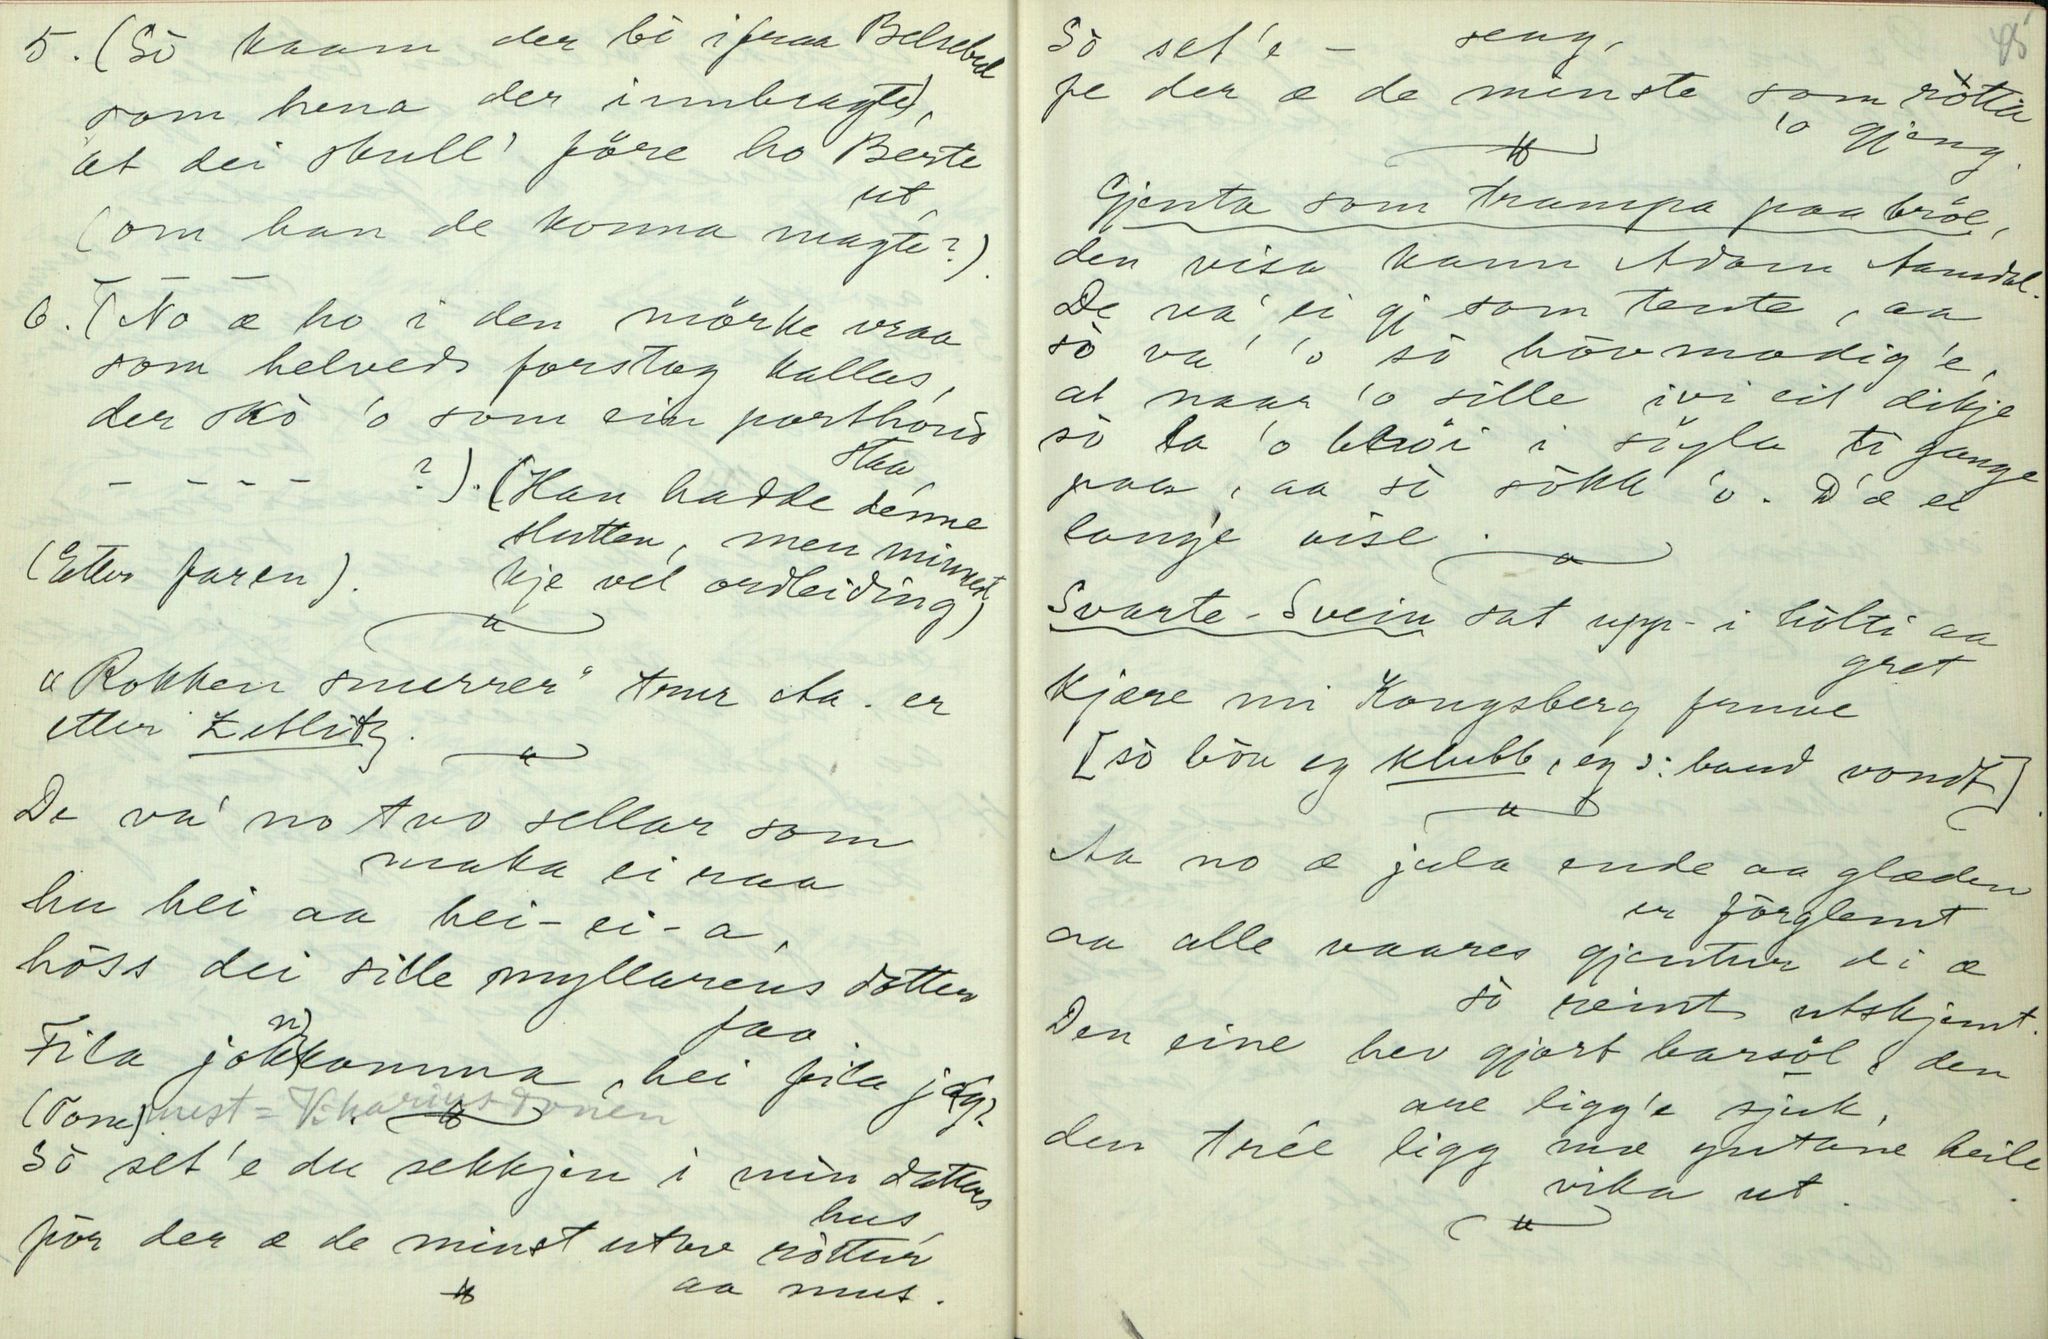 5. (Sò kaam der bò ifraa Belsebud
som hena der innbragte),
at dei skull' före ho Berte
ut,
(om han de konna magte?).
6. (No æ ho i den mörke vraa
som helveds forstog kallas,
der skò 'o som ein porthond
staa
- - - - ?). (Han hadde denne
slutten, men minnest
(Etter faren). kje vel ordleiding)
"Rokken snurrer" trur Aa. er
etter Zetlitz.
De va' no tvo sellar som
maka ei raa
hu hei aa hei-ei-a,
höss dei sille myllarens dotter
faa
Fila jonkomma, hei fila jag?
(Tone) mest = Vikarius tonen
Sò set'e du sekkjen i min dotters
hus
för der æ de minst utav röttur
aa mus.
45
Sò set'e - seng,
fe der æ de minste som rötta
'o gjeng.
Gjenta som trampa paa bröe,
den visa kann Adam Aamdal.
De va' ei gj som tente, aa
sò va' 'o sò hòvmodig'e,
at naar 'o sille ivi eit dikje
sò la 'o bröi i söyla ti gange
paa, aa sò sökk 'o. D'æ ei
lang'e vise.
Svarte-Svein sat upp-i hòlti aa
gret
Kjære mi Kongsberg fruve
[sò bòn eg klubb, eg ɔ: band vondt]
Aa no æ jula ende aa glæden
er förglemt
aa alle vaares gjentur di æ
sò reint utskjemt.
Den eine hev gjort barsöl, den
are ligg'e sjuk,
den trée ligg mæ gutane heile
vika ut.